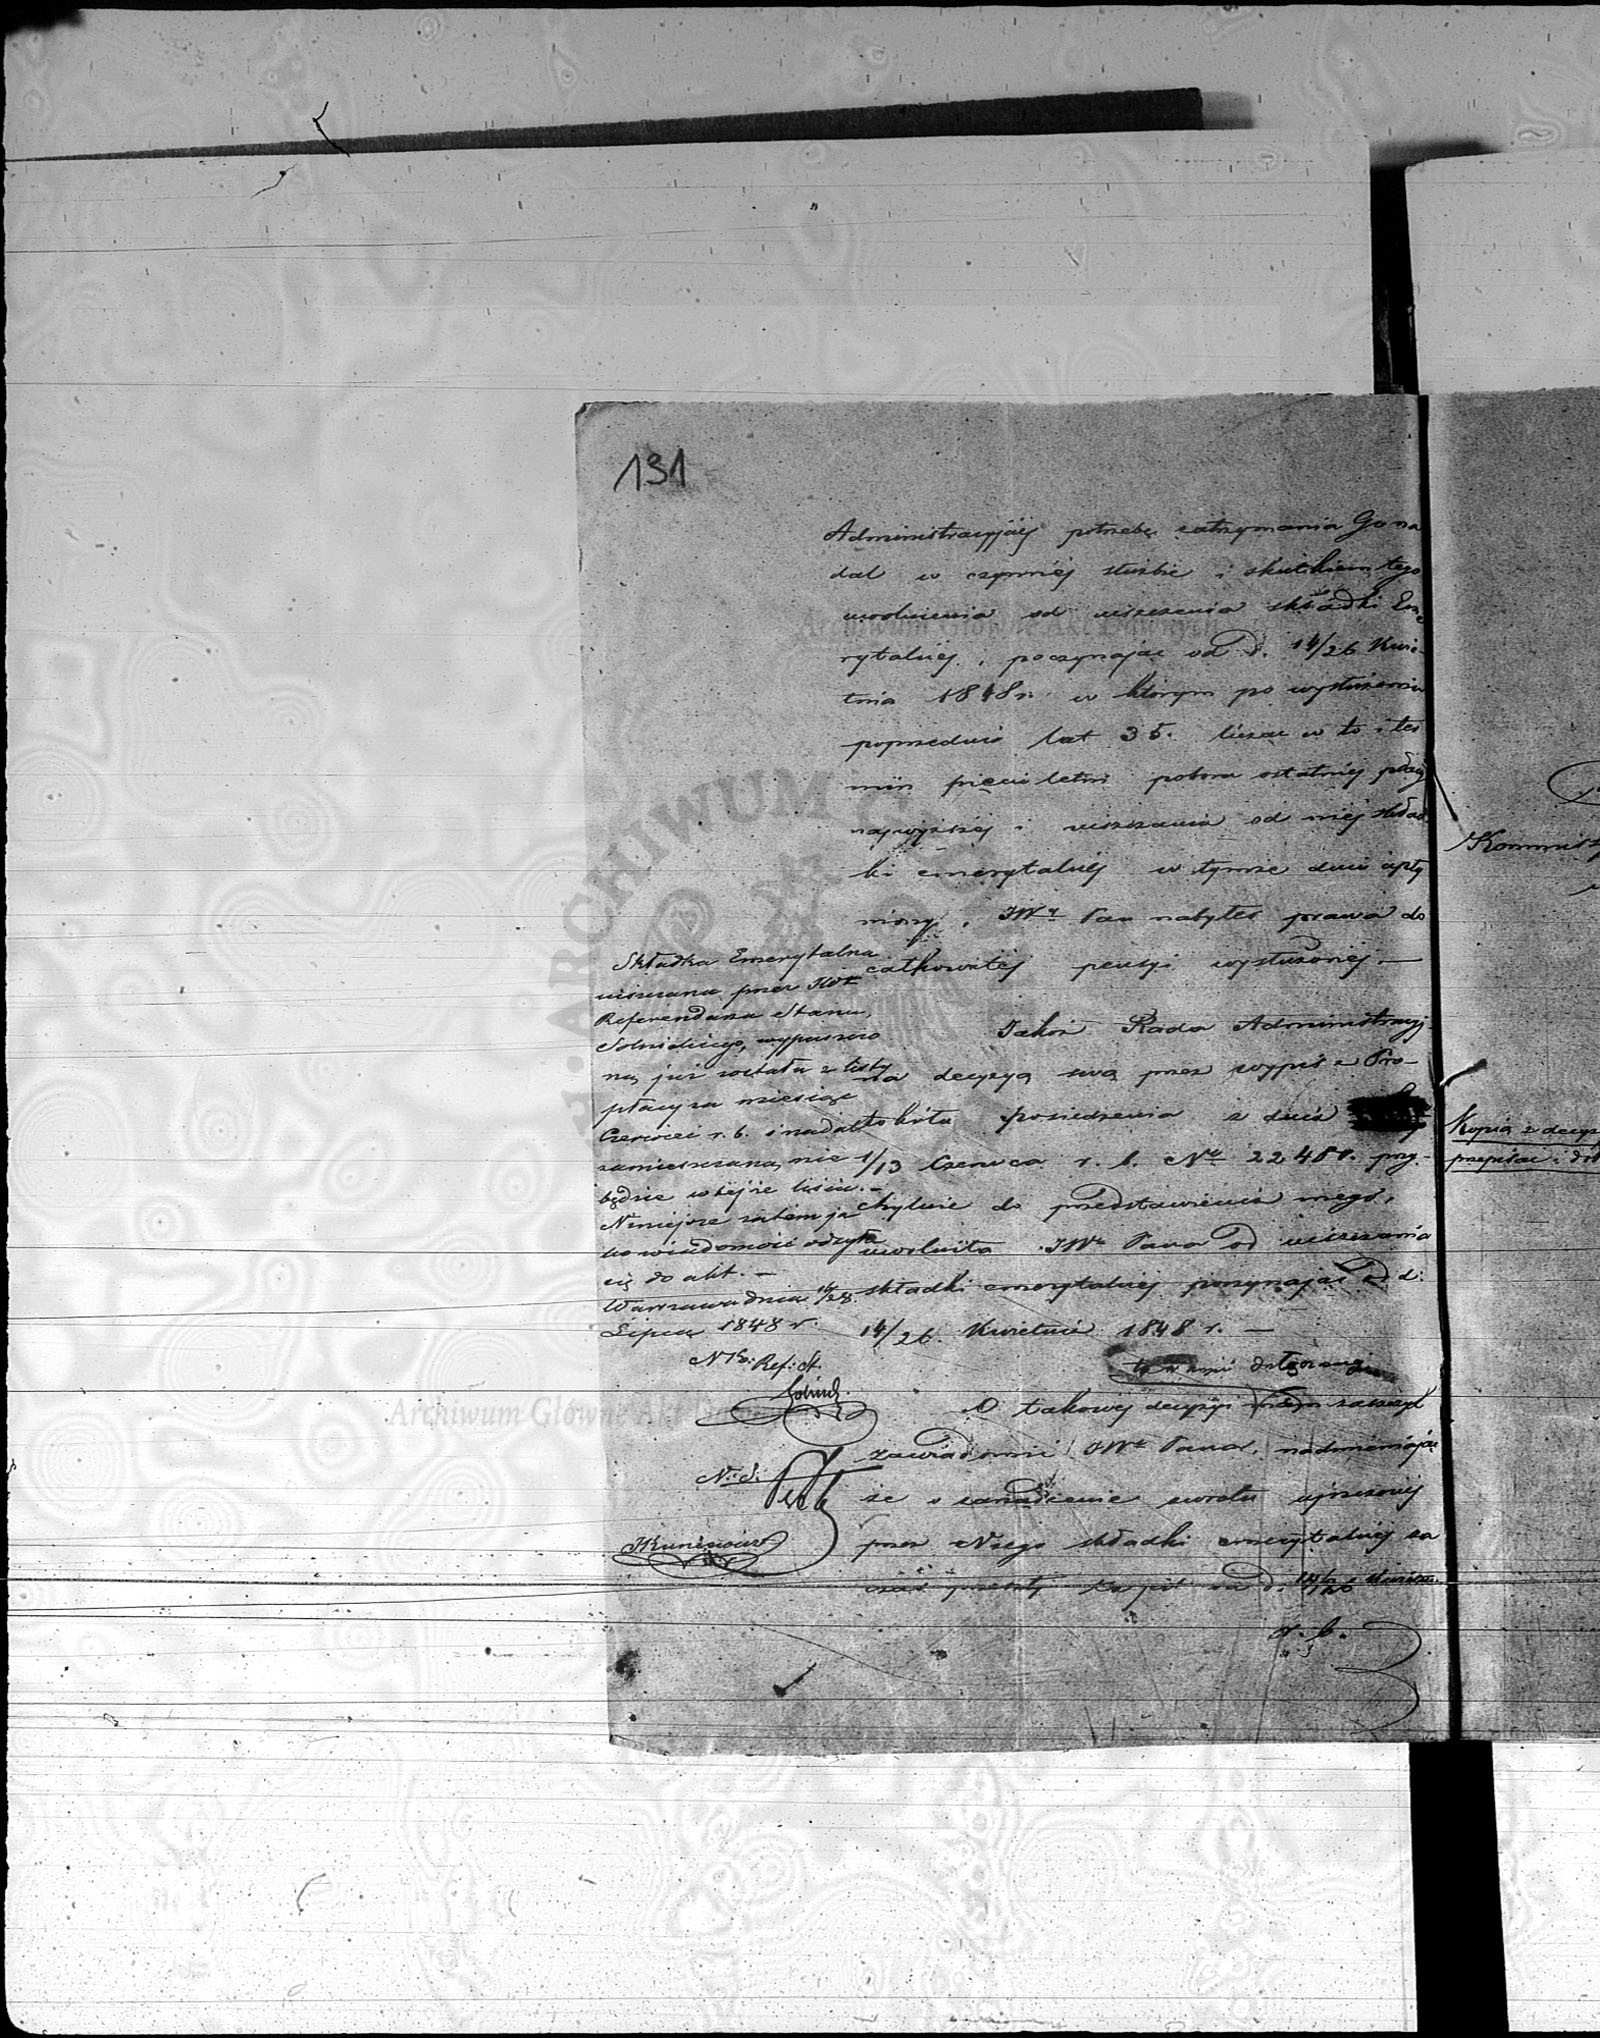 131
Administracyjnéj potrzebę zatrzymania Go na
dal w czynnéj służbie i skutkiem tego
uwolnienia od uiszczenia składki Eme
rytalnéj, poczynając od d. 14/26 Kwie-
tnia 1848 r. w którym po wysłużeniu
poprzednio lat 35. licząc w to i ter
min pięcio letni poboru ostatniéj płacy
najwyższéj i uiszczania od niéj skład
ki emerytalnéj w tymże dniu upły
niony, JWy Pan nabyłeś prawa do
całkowitéj pensyi wysłużonéj. —
Jakoż Rada Administracyj-
na decyzyą swą przez wypis z Pro-
tokółu posiedzenia z dnia
1/13 Czerwca r. b. Nr 22481. przy-
chylnie do przedstawienia mego,
uwolniła JWo Pana od uiszczania
składki emerytalnéj poczynając od d.
14/26 Kwietnia 1848 r. —
O takowéj decyzyi mam zaszczyt
zawiadomić JWo Pana, nadmieniając
że o zarządzenie zwrotu uiszczonéj
przez Niego składki emerytalnéj za
czas od d. 14/26 Kwietnia
r. b.
Składka Emerytalna
uiszczana przez JWo
Referendarza Stanu,
Solnickiego, wypuszczo
ną już została z listy
płacy za miesiąc
Czerwiec r. b. i nadal
zamieszczaną nie
będzie w téjże liście. —
Niniejsze zatem ja
ko wiadomość odsyła
się do akt. —
Warszawa dnia 16/28
Lipca 1848 r.
Ref: St.
N. S.
Kunciewicz
Archiwum Główne Akt Dawnych
Archiwum Główne Akt Dawnych
ARCHIWUM
Kommis
Kopia z decyz
przepisać i do